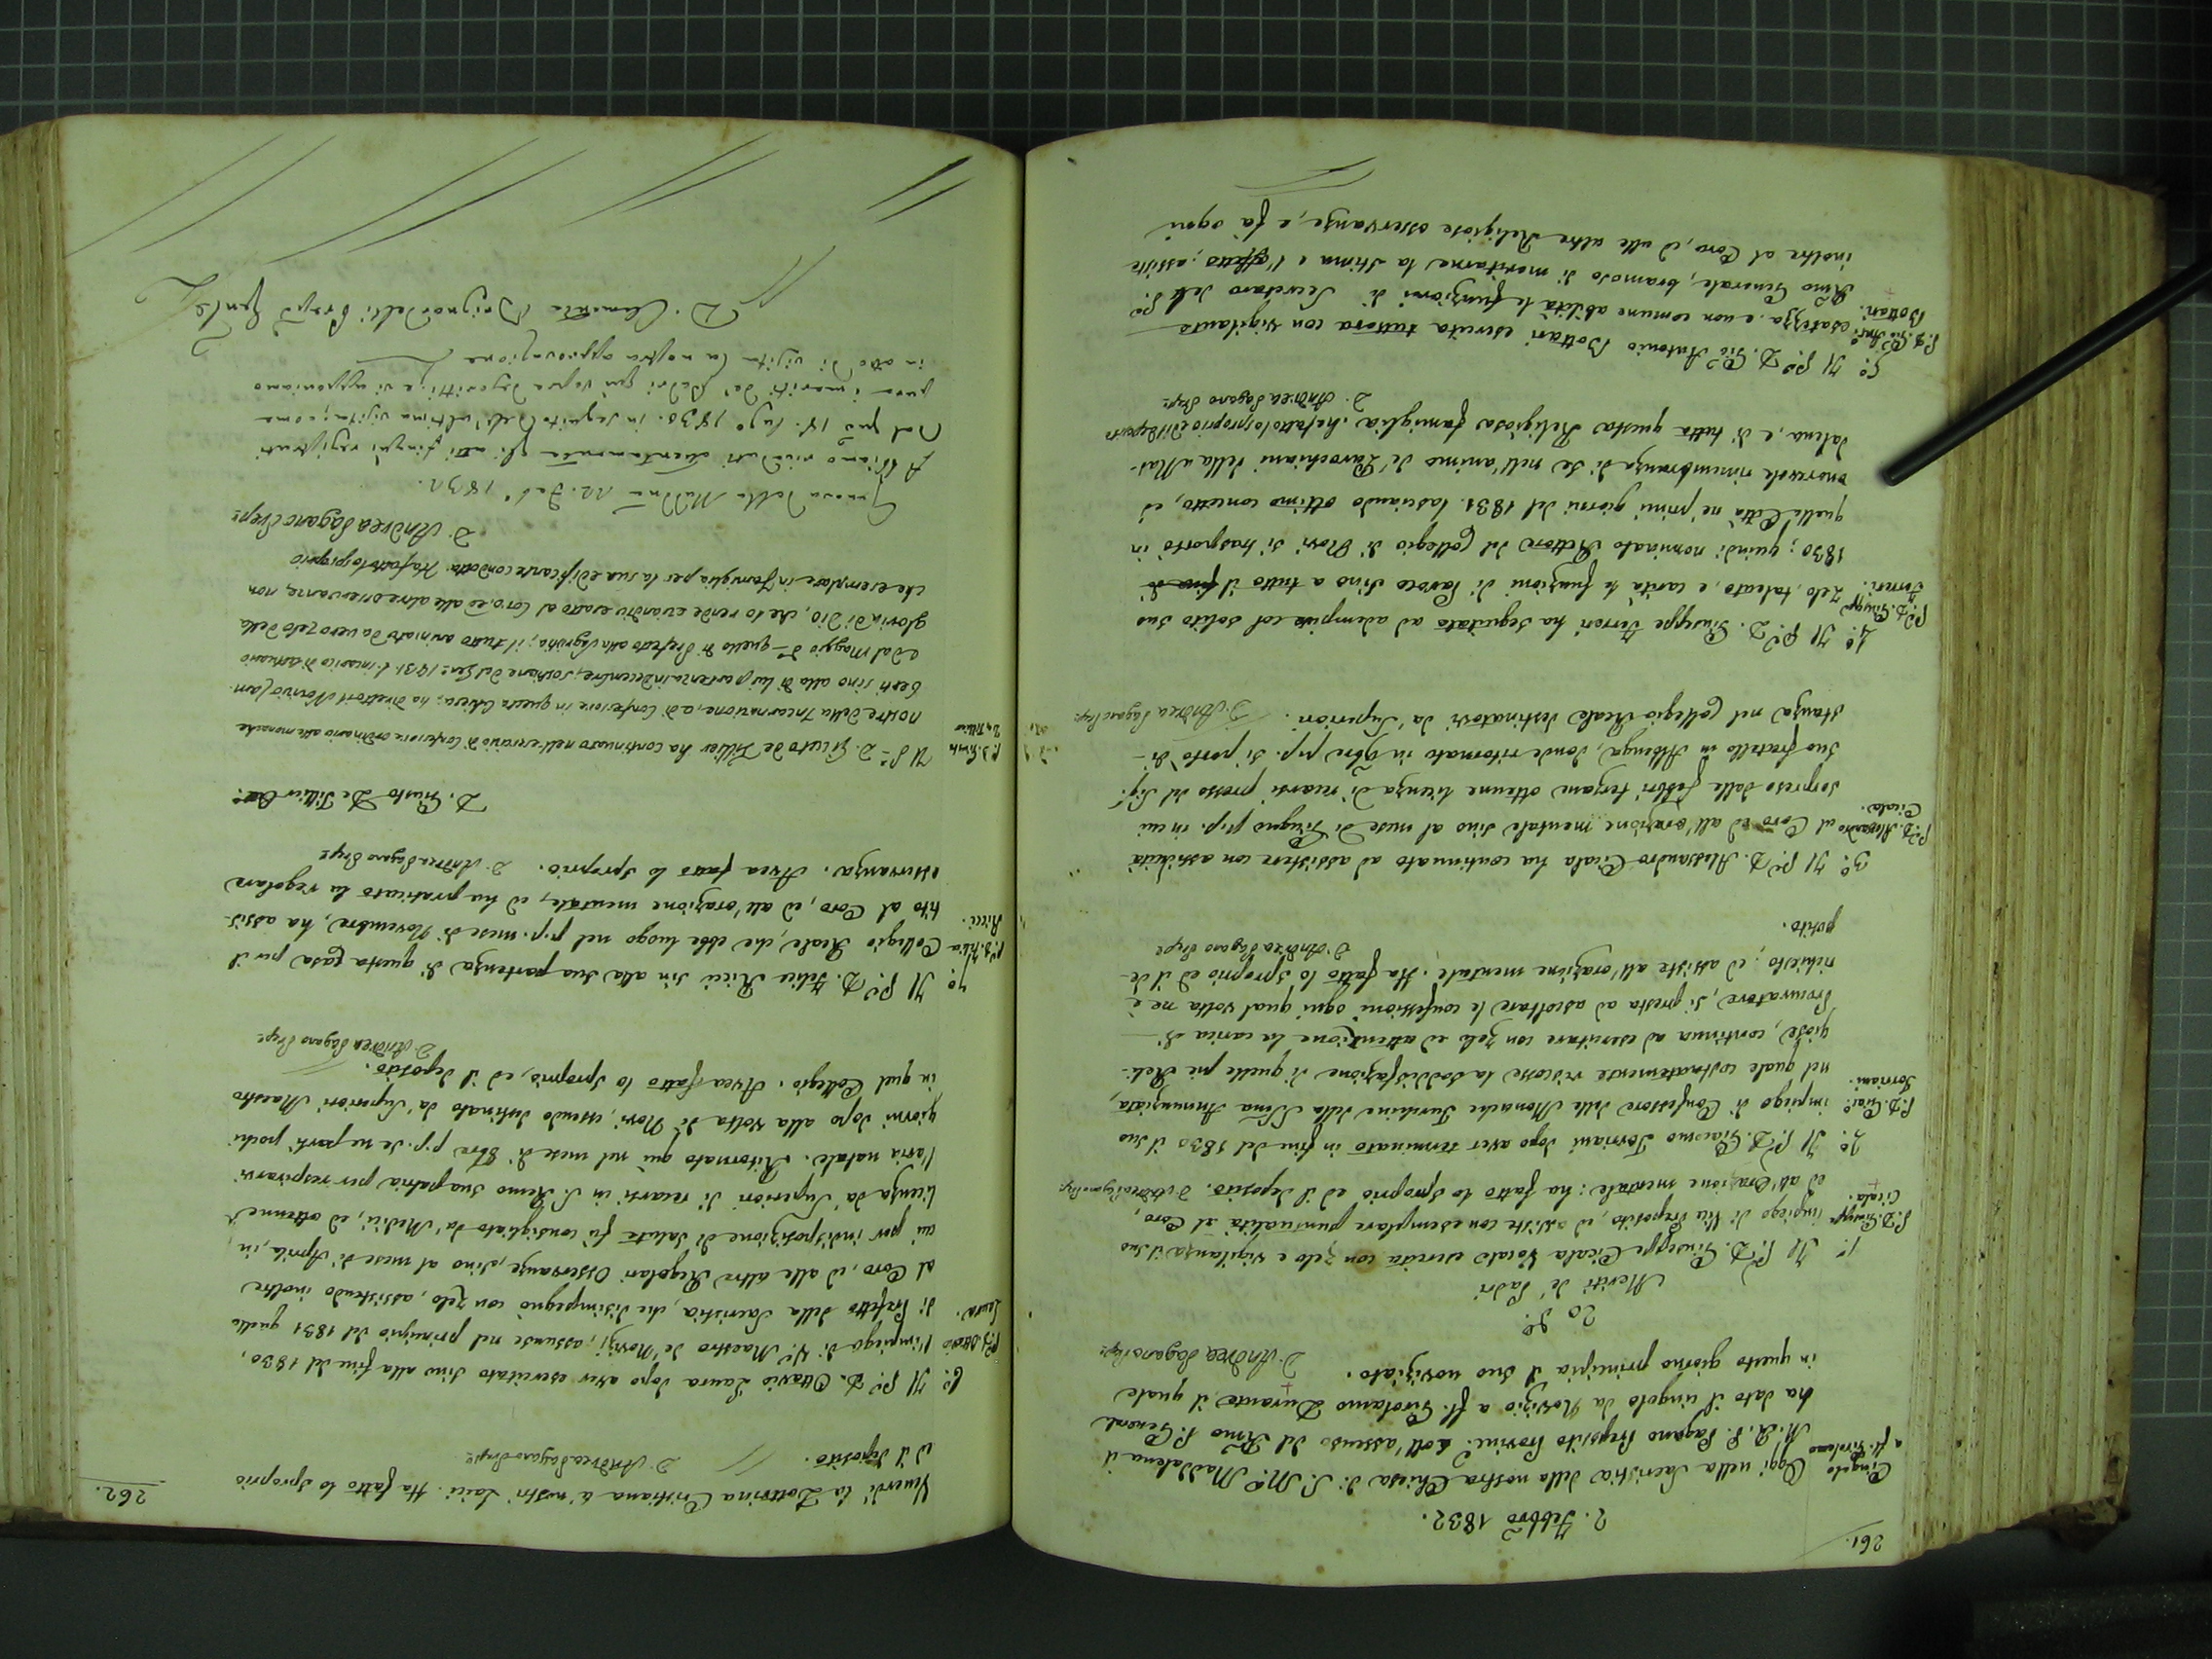 261.
2. Febbro 1832.
Cingolo
a fl. Girolamo
Oggi nella Sacristia della nostra Chiesa di S. M.a Maddalena il
M. R. P. Pagano Preposito Provinc.e coll'assenso del Rmo P. General
ha dato il cingolo da Novizio a fl. Girolamo Durante il quale
in questo giorno principia il suo noviziato.
D. Andrea Pagano Prep.to
20 d.o
Meriti de' Padri
P. D. Giuseppe
Cicala.
1.o Il P. D. Giuseppe Cicala Vocale esercita con zelo e vigilanza il suo
impiego di Vice Preposito, ed assiste con esemplare puntualità al Coro,
ed all'Orazione mentale: ha fatto lo Sproprio ed il deposito. D. Andrea Pagano Prep.
P. D. Giac.o
Torriani.
2.o Il P. D. Giacomo Torriani dopo aver terminato in fine del 1830 il suo
impiego di Confessore delle Monache Turchine della SSma Annunziata,
nel quale costantemente riscosse la soddisfazione di quelle pie Reli-
giose, continua ad esercitare con zelo ed attenzione la carica di
Procuratore, si presta ad ascoltare le confessioni ogni qual volta ne è
richiesto, ed assiste all'orazione mentale. Ha fatto lo Sproprio ed il de-
posito.
D. Andrea Pagano Prep.to
P. D. Alessandro
Cicala.
3.o Il P. D. Alessandro Cicala ha continuato ad assistere con assiduità
al Coro ed all'orazione mentale sino al mese di Giugno p.p. in cui
sorpreso dalle febbri terzane ottenne licenza di recarsi presso del Sig.
suo fratello in Albenga, donde ritornato in 9bre p.p. si portò di
stanza nel Collegio Reale destinatovi da' Superiori. D. Andrea Pagano Prep.
P. D. Giusepp.
Ferreri.
4.o Il P. D. Giuseppe Ferreri ha seguitato ad adempire col solito suo
zelo, talento, e carità le funzioni di Paroco sino a tutto il
1830; quindi nominato Rettore del Collegio di Novi si trasportò in
quella Città ne' primi giorni del 1831. lasciando ottimo concetto, ed
onorevole rimembranza di se nell'animo de' Parochiani della Mad-
dalena, e di tutta questa Religiosa famiglia. Ha fatto lo proprio ed il deposito
D. Andrea Pagano Prep.to
P. D. Gio Ant.o
Bottari.
5.o Il P. D. Gio Antonio Bottari esercita tuttora con vigilante
esatezza, e non comune abilità le funzioni di Secretaro del P.
Rmo Generale, bramoso di meritarne la stima e l'affetto; assiste
inoltre al Coro, ed alle altre Religiose osservanze, e fà ogni
262.
Venerdì la Dottrina Cristiana a' nostri Laici. Ha fatto lo Sproprio
ed il deposito. D. Andrea Pagano Prep.to
P. D. Ottavio
Laura.
6.o Il P. D. Ottavio Laura dopo aver esercitato sino alla fine del 1830,
l'impiego di V.e Maestro de' Novizj, assunse nel principio del 1831 quello
di Prefetto della Sacristia, che disimpegnò con zelo, assistendo inoltre
al Coro, ed alle altre Regolari Osservanze, sino al mese di Aprile, in
cui per indisposizione di salute fù consigliato da' Medici, ed ottenne
licenza da' Superiori di recarsi in S. Remo sua patria per respirarvi
l'aria natale. Ritornato quì nel mese di 8bre p.p. se ne partì pochi
giorni dopo alla volta di Novi, essendo destinato da' Superiori Maestro
in quel Collegio. Avea fatto lo Sproprio, ed il deposito.
D. Andrea Pagano Prep.to
P. D. Felice
Ricci.
7.o Il P. D. Felice Ricci sin alla sua partenza di questa Casa per il
Collegio Reale, che ebbe luogo nel p.p. mese di Novembre, ha assis-
tito al Coro, ed all'orazione mentale, ed ha praticato la regolare
osservanza. Avea fatto lo Sproprio. D. Andrea Pagano Prep.to
D. Giusto De Tillier
P. D. Giusto
De Tillier
Il P. D. Giusto de Tillier ha continuato nell'esercizio di Confessore ordinario alle monache
nostre della Incarnazione, e di Confessore in questa Chiesa; ha diretto il Novizio Lam-
berti sino alla di lui partenza in decembre; sostiene del Gen.o 1831. l'incarico di Attuario
e dal Maggio d.o quello di Prefetto alla Sagristia; il tutto animato da vero zelo della
gloria di Dio, che lo rende eziandio esatto al Coro, ed alle altre osservanze, non
che esemplare in famiglia per la sua edificante condotta. Ha fatto lo proprio
D. Andrea Pagano Prep.to
Genova dalla Madd.na 22. Feb.o 1832.
Abbiamo riveduti attentamente gli atti sin quì registrati
dal giorno 18. Lug.o 1830. in seguito dell'ultima visita; come
pure i meriti de' Padri qui sopra descritti; e vi apponiamo
in atto di visita la nostra approvazione
D. Clemente Brignardelli Prep.to Gen.le